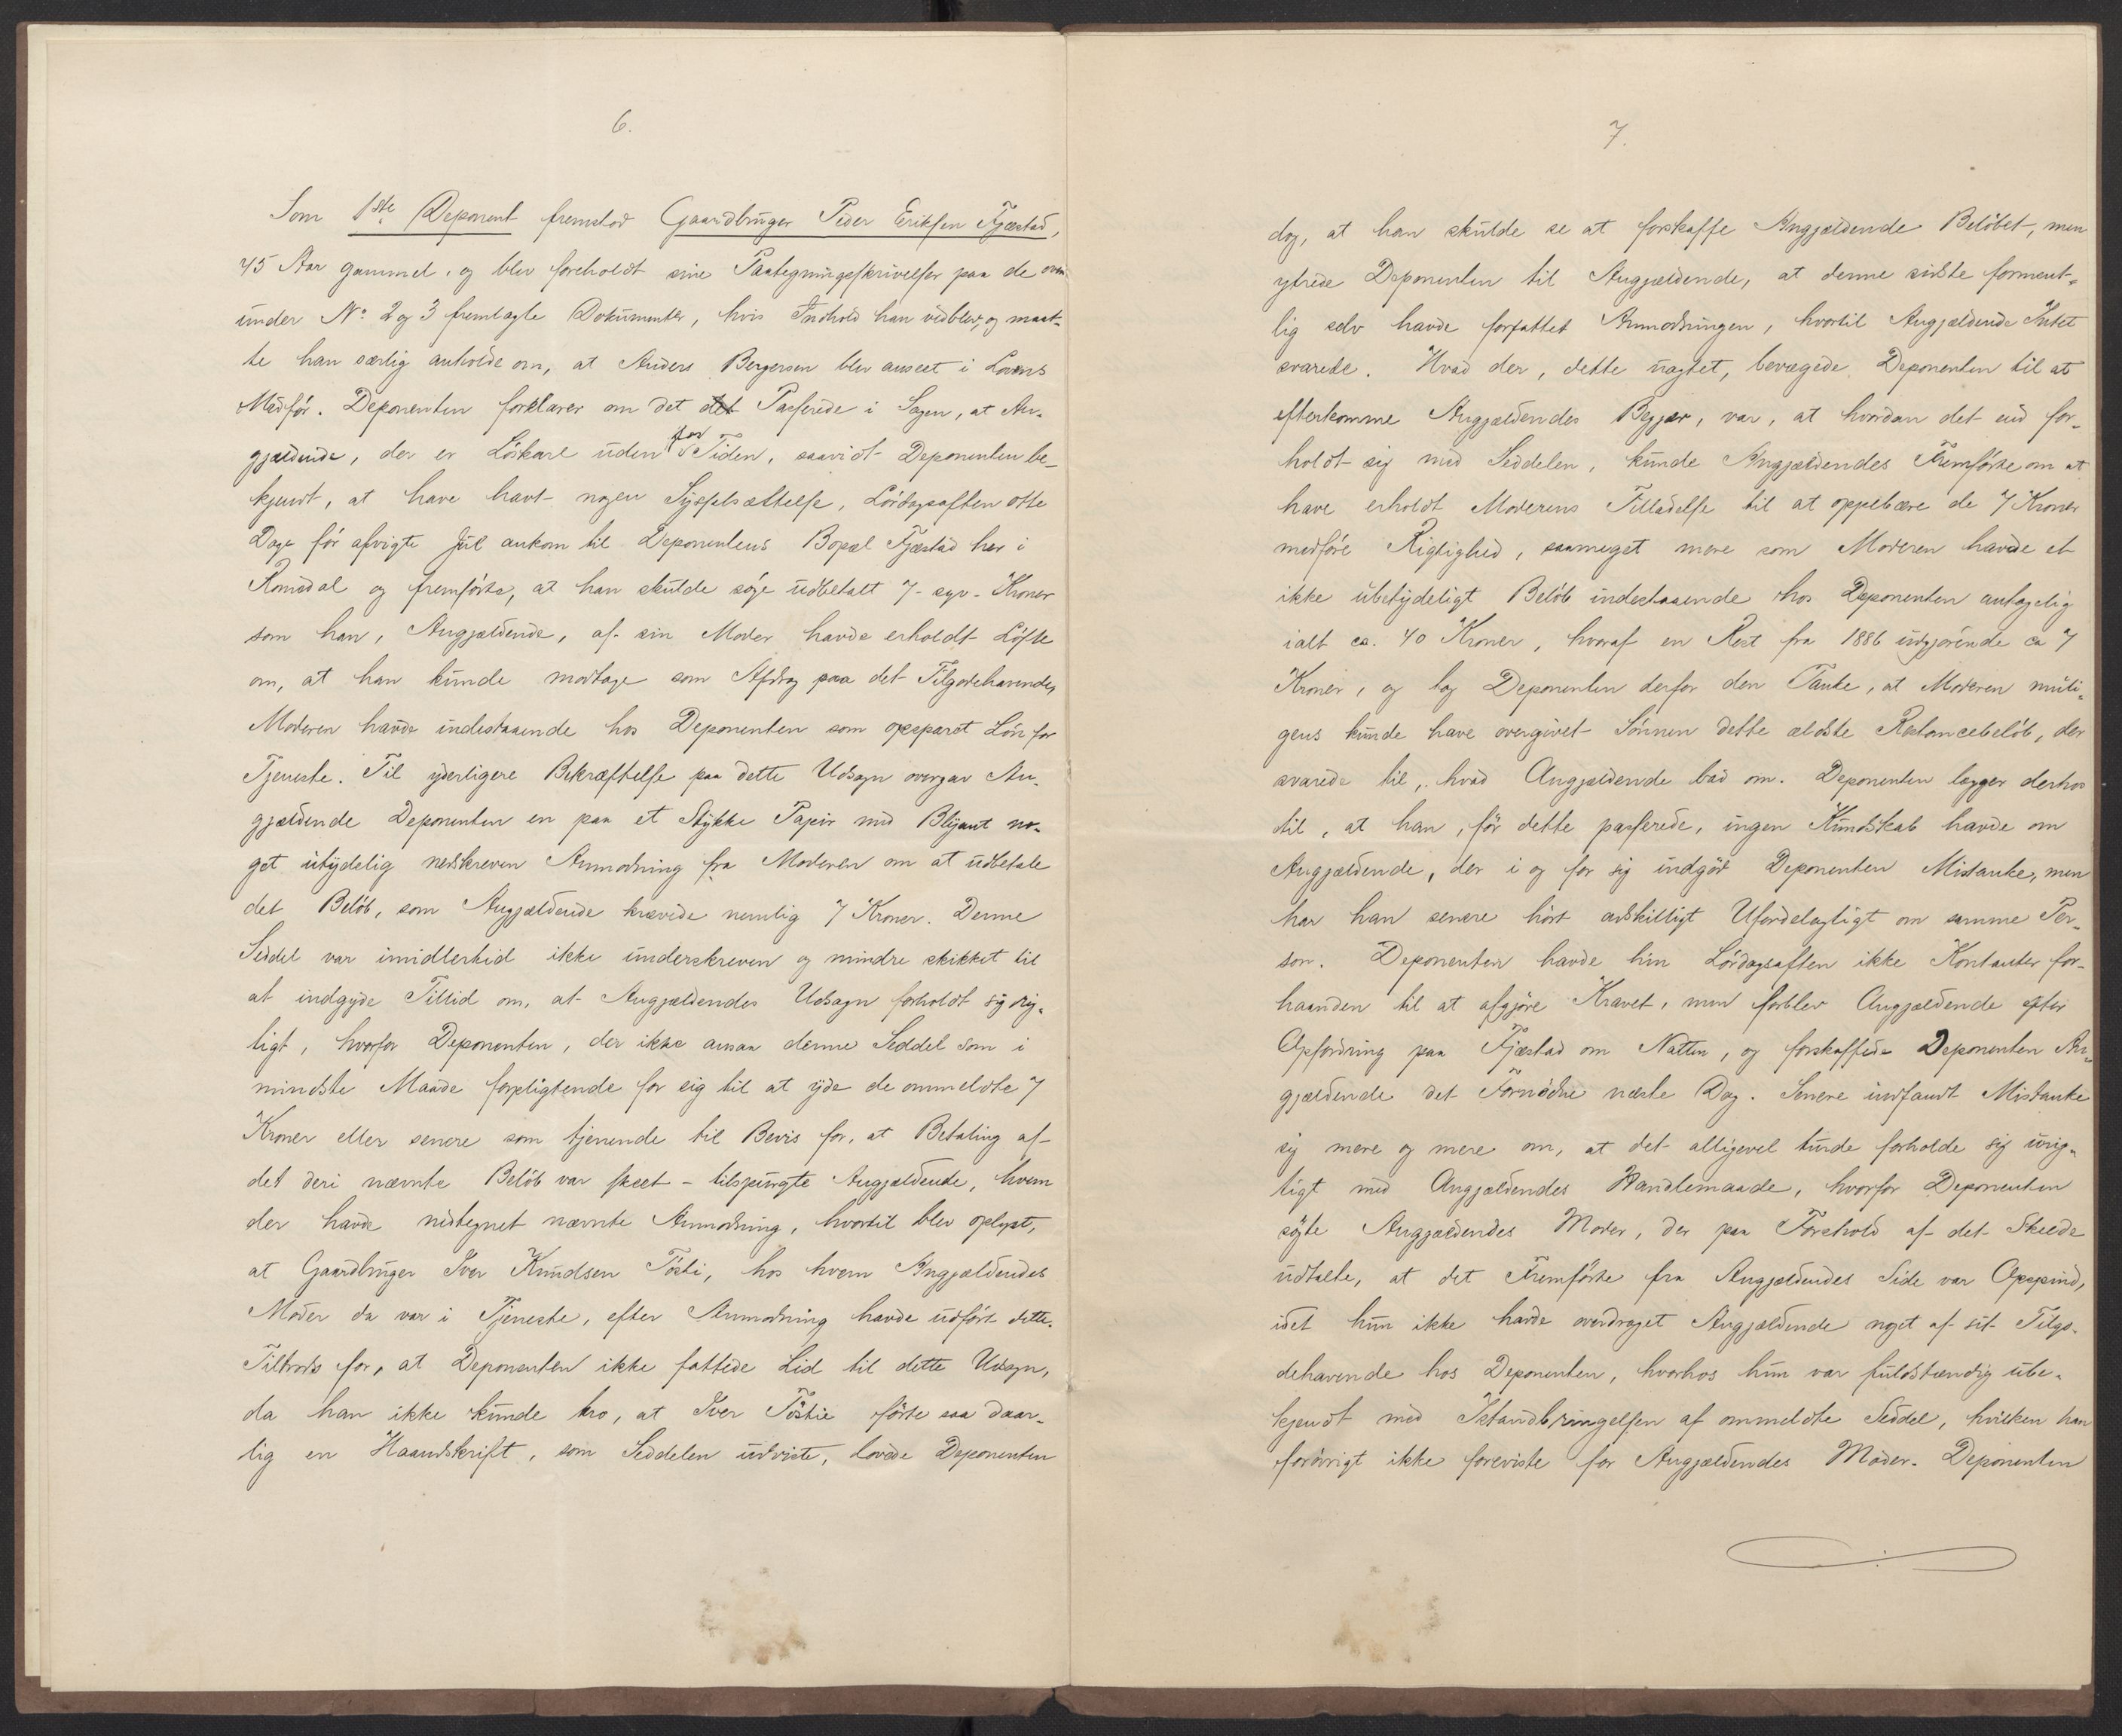 6.
Som 1ste Deponent fremstod Gaardbruger Peder Eriksen Fjæstad,
45 Aar gammel, og blev foreholdt sine Paategningsskrivelser paa de
under No. 2 og 3 fremlagte Dokumenter, hvis Indhold han vedblev, og maat-
te han særlig anholde om, at Anders Bergersen blev anseet i Lovens
Medför. Deponenten forklarer om det det Passerede i Sagen, at An-
gjældende, der er Löskarl uden for Tiden, saavidt Deponenten be-
kjendt, at have havt nogen Sysselsættelse, Lördagsaften otte
Dage för afvigte Jul ankom til Deponentens Bopæl Fjæstad her i
Romsdal og fremförte, at han skulde söge udbetalt 7 - syv - Kroner
som han, Angjældende, af sin Moder havde erholdt Löfte
om, at han kunde modtage som Afdrag paa det Tilgodehavendes
Moderen havde indestaaende hos Deponenten som opsparet Lön for
Tjeneste. Til yderligere Bekræftelse paa dette Udsagn overgav An-
gjældende Deponenten en paa et Stykke Papir med Blyant no-
get utydelig nedskreven Anmodning fra Moderen om at udbetale
det Belöb, som Angjældende krævede nemlig 7 Kroner. Denne
Seddel var imidlertid ikke underskreven og mindre skikket til
at indgyde Tillid om, at Angjældendes Udsagn forholdt sig rig-
tigt, hvorfor Deponenten, der ikke ansaa denne Seddel som i
mindste Maade forpligtende for sig til at yde de ommeldte 7
Kroner eller senere som tjenende til Bevis for, at Betaling af
det deri nævnte Belöb var skeet - tilspurgte Angjældende, hvem
der havde nedtegnet nævnte Anmodning, hvortil blev oplyst,
at Gaardbruger Iver Knudsen Töfti, hos hvem Angjældendes
Moder da var i Tjeneste, efter Anmodning havde udfört dette.
Tiltrods for, at Deponenten ikke fattede Lid til dette Udsagn,
da han ikke kunde tro, at Iver förte saa daar-
lig en Haandskrift, som Seddelen udviste, lovede Deponenten
7.
dog, at han skulde se at forskaffe Angjældende Belöbet, men
ytrede Deponenten til Angjældende, at denne sidste forment-
lig selv havde forfattet Anmodningen, hvortil Angjældende Intet
svarede. Hvad der, dette uagtet, bevægede Deponenten til at
efterkomme Angjældendes Begjær, var, at hvordan det end for-
holdt sig med Seddelen, kunde Angjældendes Fremförte om at
have erholdt Moderens Tilladelse til at oppebære de 7 Kroner
medföre Rigtighed, saameget mere som Moderen havde et
ikke ubetydeligt Belöb indestaaende hos Deponenten antagelig
ialt ca. 40 Kroner, hvoraf en Rest fra 1886 udgjörende ca 7
Kroner, og tog Deponenten derfor den Tanke, at Moderen muli-
gens kunde have overgivet Sönnen dette ældste Restancebelöb, der
svarede til, hvad Angjældende bad om. Deponenten lægger derhos
til, at han, för dette passerede, ingen Kundskab havde om
Angjældende, der i og for sig indgöd Deponenten Mistanke, men
har han senere hört adskilligt Ufordelagtigt om samme Per-
son. Deponenten havde hin Lördagsaften ikke Kontanter for-
haanden til at afgjöre Kravet, men forblev Angjældende efter
Opfordring paa Fjæstad om Natten, og forskaffede Deponenten An-
gjældende det Fornödne næste Dag. Senere indfandt Mistanke
sig mere og mere om, at det alligevel turde forholde sig urig-
tigt med Angjældendes Handlemaade, hvorfor Deponenten
sögte Angjældendes Moder, der paa Forehold af det Skeede
udtalte, at det Fremförte fra Angjældendes Side var Opspind,
idet hun ikke havde overdraget Angjældende noget af sit Tilgo-
dehavende hos Deponenten, hvorhos hun var fuldstændig ube-
kjendt med Istandbringelsen af ommeldte Seddel, hvilken han
forövrigt ikke foreviste for Angjældendes Moder. Deponenten